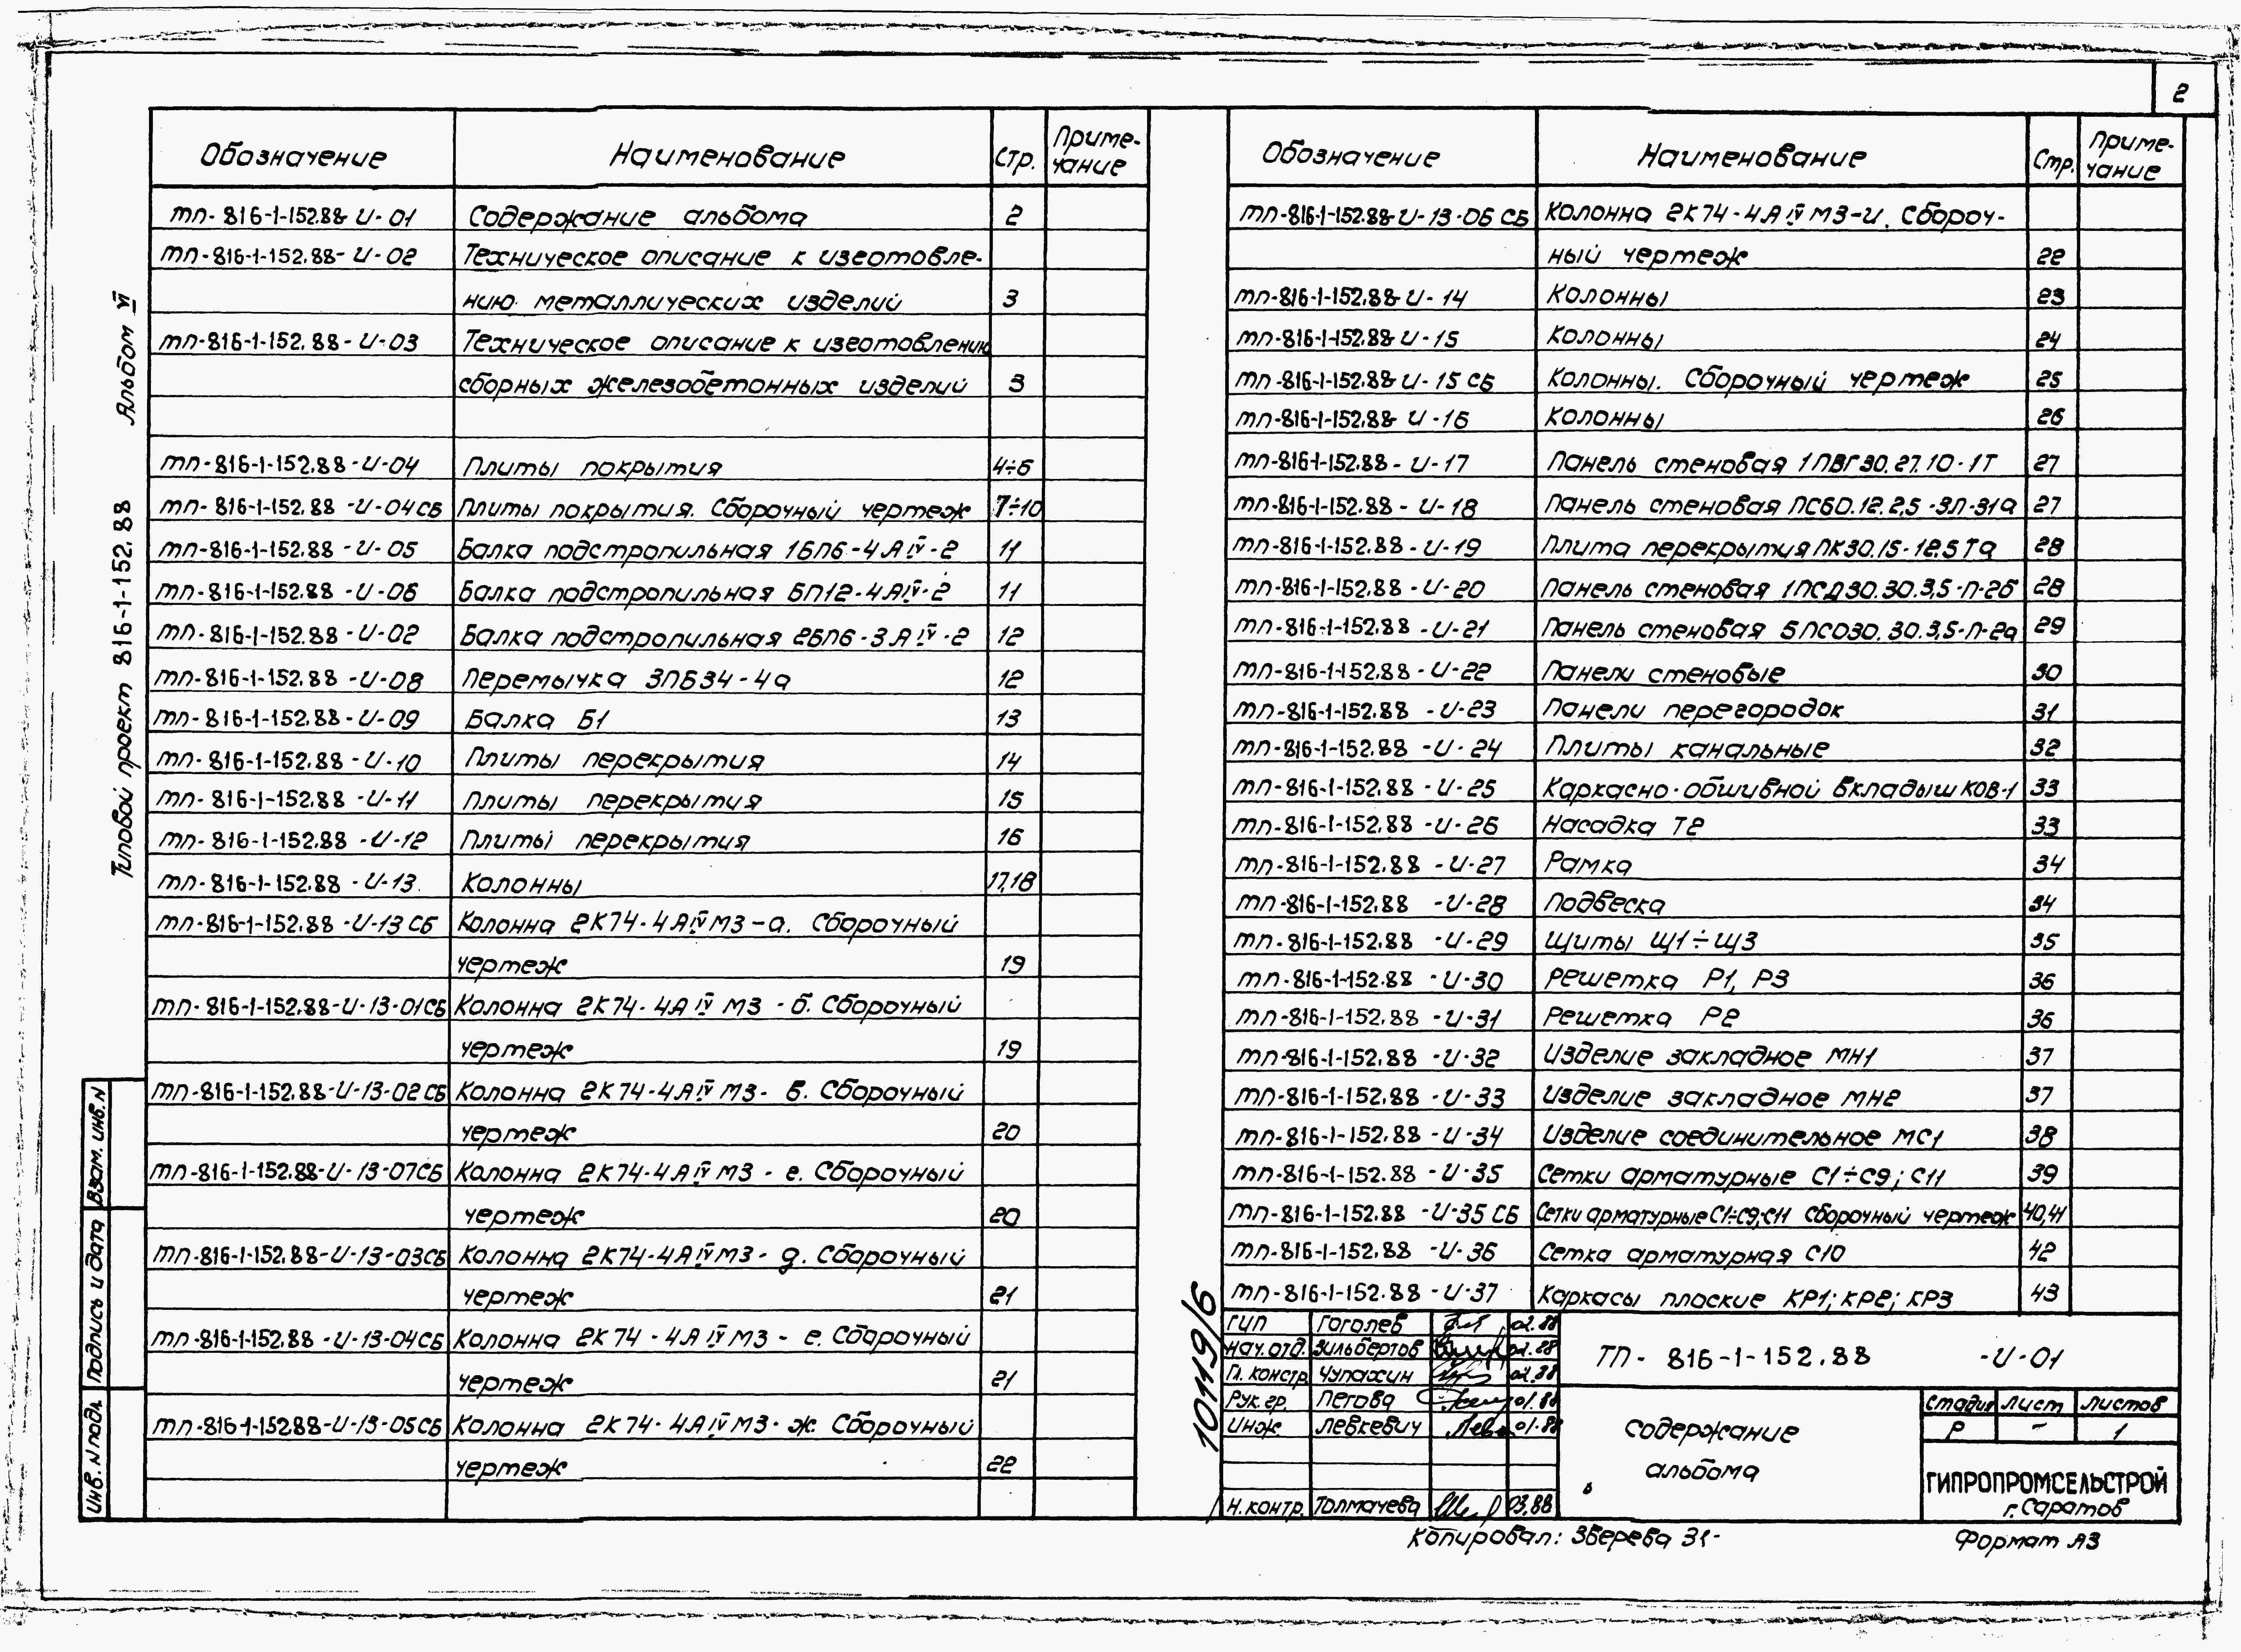 2
Альбом VI
Типовой проект 816-1-152.88
Взам. инв. N
Подпись и дата
Инв. N подл.
Обозначение Наименование Стр. Приме-
чание
тп-816-1-152.88-И-01 Содержание альбома 2
тп-816-1-152.88-И-02 Техническое описание к изготовле-
нию металлических изделий 3
тп-816-1-152.88-И-03 Техническое описание к изготовлению
сборных железобетонных изделий 3
тп-816-1-152.88-И-04 Плиты покрытия 4÷6
тп-816-1-152.88-И-04СБ Плиты покрытия. Сборочный чертеж 7÷10
тп-816-1-152.88-И-05 Балка подстропильная 1БП6-4АIV-2 11
тп-816-1-152.88-И-06 Балка подстропильная БП12-4АIV-2 11
тп-816-1-152.88-И-02 Балка подстропильная 2БП6-3АIV-2 12
тп-816-1-152.88-И-08 Перемычка 3ПБ34-4а 12
тп-816-1-152.88-И-09 Балка Б1 13
тп-816-1-152.88-И-10 Плиты перекрытия 14
тп-816-1-152.88-И-11 Плиты перекрытия 15
тп-816-1-152.88-И-12 Плиты перекрытия 16
тп-816-1-152.88-И-13 Колонны 17,18
тп-816-1-152.88-И-13СБ Колонна 2К74-4АIVМ3-а. Сборочный
чертеж 19
тп-816-1-152.88-И-13-01СБ Колонна 2К74-4АIVМ3-б. Сборочный
чертеж 19
тп-816-1-152.88-И-13-02СБ Колонна 2К74-4АIVМ3-в. Сборочный
чертеж 20
тп-816-1-152.88-И-13-07СБ Колонна 2К74-4АIVМ3-е. Сборочный
чертеж 20
тп-816-1-152.88-И-13-03СБ Колонна 2К74-4АIVМ3-д. Сборочный
чертеж 21
тп-816-1-152.88-И-13-04СБ Колонна 2К74-4АIVМ3-е. Сборочный
чертеж 21
тп-816-1-152.88-И-13-05СБ Колонна 2К74-4АIVМ3-ж. Сборочный
чертеж 22
Обозначение Наименование Стр. Приме-
чание
тп-816-1-152.88-И-13-06СБ Колонна 2К74-4АIVМ3-И. Сбороч-
ный чертеж 22
тп-816-1-152.88-И-14 Колонны 23
тп-816-1-152.88-И-15 Колонны 24
тп-816-1-152.88-И-15СБ Колонны. Сборочный чертеж 25
тп-816-1-152.88-И-16 Колонны 26
тп-816-1-152.88-И-17 Панель стеновая 1ПВГ30.27.10-1Т 27
тп-816-1-152.88-И-18 Панель стеновая ПС60.12.2,5-3Л-31а 27
тп-816-1-152.88-И-19 Плита перекрытия ПК30.15-12,5Та 28
тп-816-1-152.88-И-20 Панель стеновая 1ПСД30.30.3,5-П-2б 28
тп-816-1-152.88-И-21 Панель стеновая 5ПСО30.30.3,5-П-2а 29
тп-816-1-152.88-И-22 Панели стеновые 30
тп-816-1-152.88-И-23 Панели перегородок 31
тп-816-1-152.88-И-24 Плиты канальные 32
тп-816-1-152.88-И-25 Каркасно-обшивной вкладыш КОВ-1 33
тп-816-1-152.88-И-26 Насадка Т2 33
тп-816-1-152.88-И-27 Рамка 34
тп-816-1-152.88-И-28 Подвеска 34
тп-816-1-152.88-И-29 Щиты Щ1÷Щ3 35
тп-816-1-152.88-И-30 Решетка Р1, Р3 36
тп-816-1-152.88-И-31 Решетка Р2 36
тп-816-1-152.88-И-32 Изделие закладное МН1 37
тп-816-1-152.88-И-33 Изделие закладное МН2 37
тп-816-1-152.88-И-34 Изделие соединительное МС1 38
тп-816-1-152.88-И-35 Сетки арматурные С1÷С9; С11 39
тп-816-1-152.88-И-35СБ Сетки арматурные С1÷С9;С11 Сборочный чертеж 40,41
тп-816-1-152.88-И-36 Сетка арматурная С10 42
тп-816-1-152.88-И-37 Каркасы плоские КР1; КР2; КР3 43
10119/6
ГИП Гоголев 02.88
Нач. отд. Зильбертов 02.88
Гл. констр. Чупахин 02.88
Рук. гр. Пегова 01.88
Инж Левкевич 01.88
Н. контр. Толмачева 03.88
ТП-816-1-152.88 -И-01
Содержание
альбома
Стадия Лист Листов
Р - 1
ГИПРОПРОМСЕЛЬСТРОЙ
г. Саратов
Копировал: Зверева 31-
Формат А3